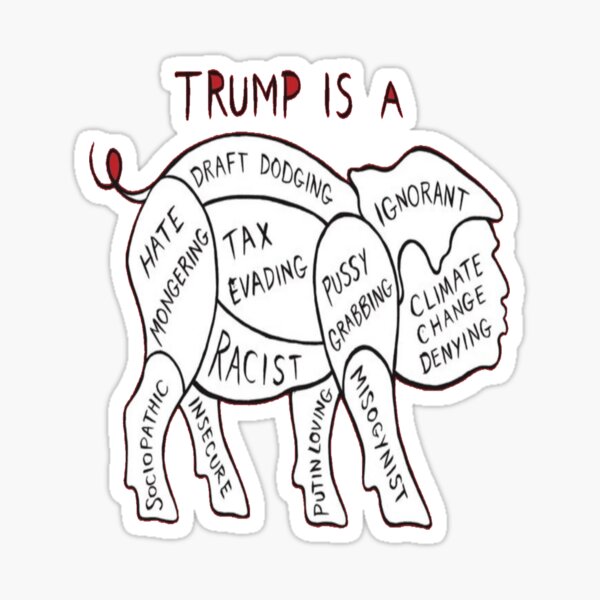 TRUMP IS A
DRAFT DODGING
IGNORANT
HATE
MONGERING
TAX
EVADING
PUSSY
GRABBING
CLIMATE
CHANGE
DENYING
RACIST
SOCIOPATHIC
INSECURE
PUTIN LOVING
MISOGYNIST